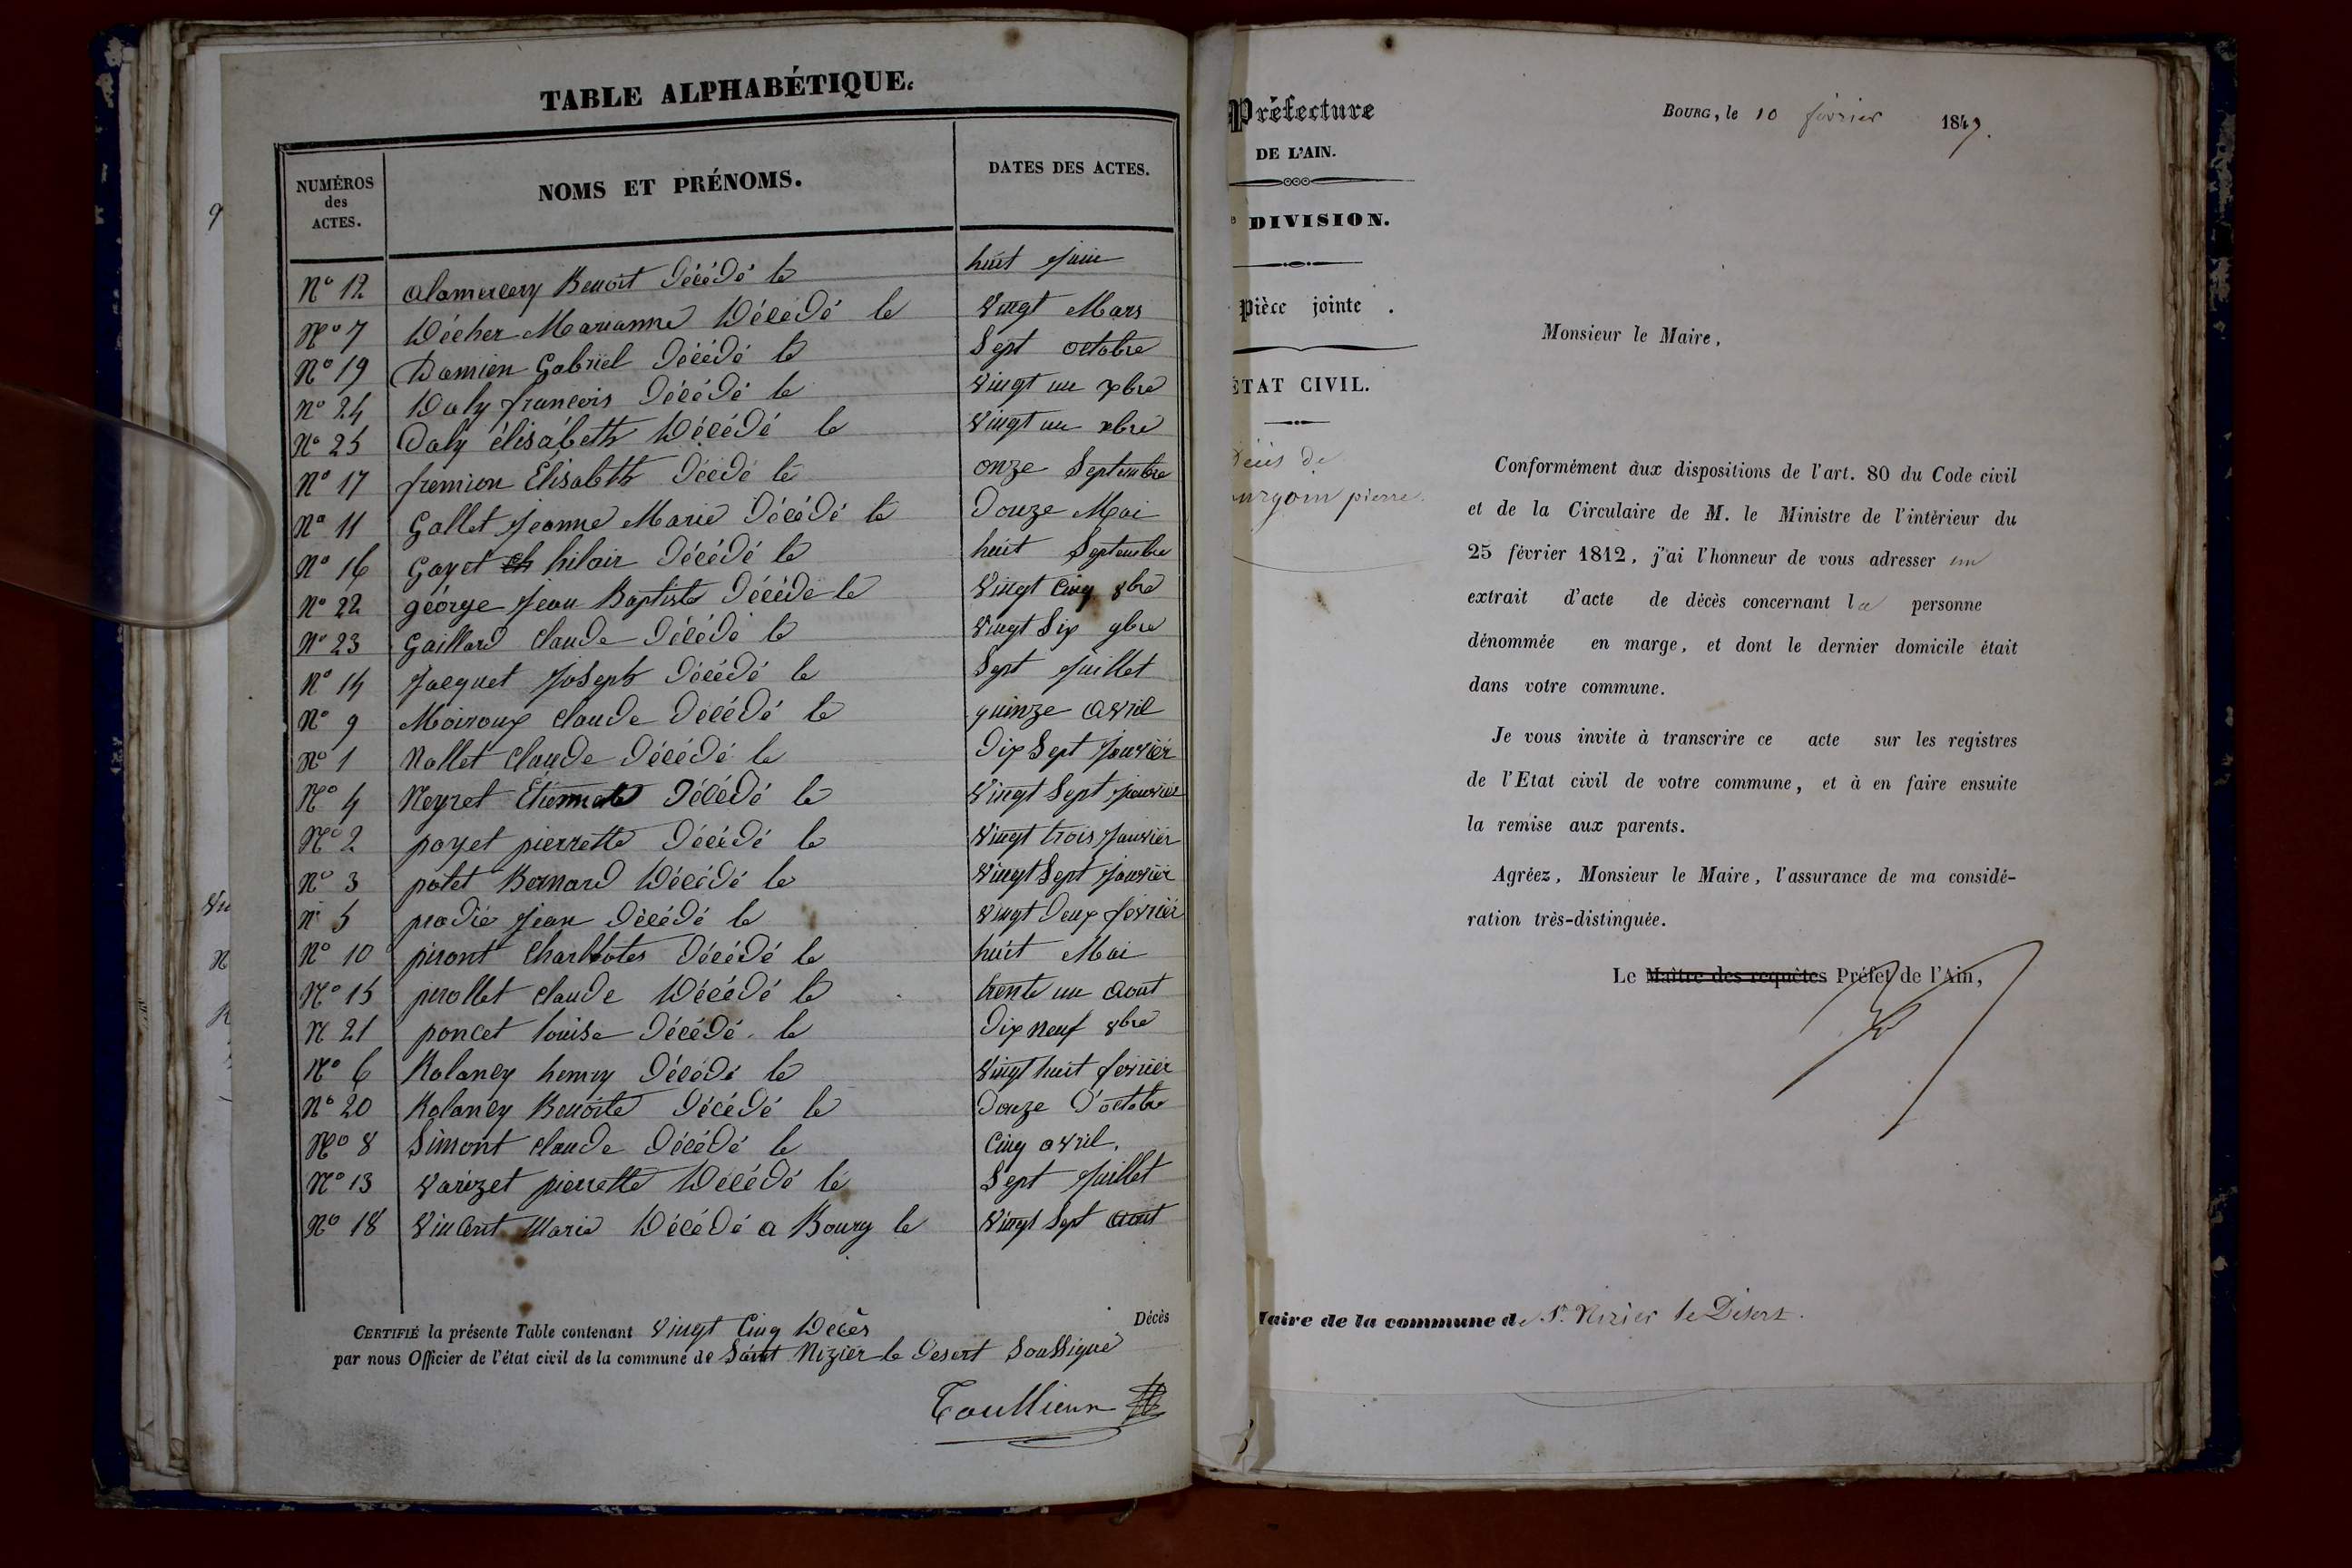 TABLE ALPHABÉTIQUE.
NUMÉROS des ACTES. NOMS ET PRÉNOMS. DATES DES ACTES.
N° 12 alamercery Benoit Décédé le huit Juin
N° 7 Décher Marianne Décédé le Vingt Mars
N° 19 Damien Gabriel Décédé le Sept octobre
N° 24 Daly françois Décédé le Vingt un xbre
N° 25 Daly élisabeth Décédé le Vingt un xbre
N° 17 fremion Elisabeth Décédé le onze Septembre
N° 11 Gallet Jeanne Marie Décédé le Douze Mai
N° 16 Gayet hilair Décédé le huit Septembre
N° 22 géorge Jean Baptiste Décédé le Vingt Cinq 8bre
N° 23 Gaillard Claude Décédé le Vingt Six 9bre
N° 14 Jacquet Joseph Décédé le Sept Juillet
N° 9 Moiroux Claude Décédé le quinze Avril
N° 1 Nallet Claude Décédé le Dix Sept Janvier
N° 4 Neyret Décédé le Vingt Sept Janvier
N° 2 payet pierrette Décédé le Vingt trois Janvier
N° 3 potet Bernard Décédé le Vingt Sept Janvier
N° 5 prodié Jean Décédé le Vingt Deux février
N° 10 piront Charlotes Décédé le huit Mai
N° 15 perollet Claude Décédé le trente un Aout
N 21 poncet louise Décédé le Dix Neuf 8bre
N° 6 Ralancy henry Décédé le Vingt huit fevrier
N° 20 Ralancy Benoite Décédé le Douze D'octobre
N° 8 Simont Claude Décédé le Cinq avril.
N° 13 Varizet pierrette Décédé le Sept Juillet
N° 18 Vincent Marie Décédé a Bourg le Vingt Sept Aout
CERTIFIÉ la présente Table contenant Vingt Cinq Décès Décès
par nous Officier de l'état civil de la commune de Saint Nizier le Desert Soussigné
Préfecture
DE L'AIN.
DIVISION.
Pièce jointe .
ÉTAT CIVIL.
Décès de
urgoin pierre.
BOURG, le 10 février 1847.
Monsieur le Maire,
Conformément aux dispositions de l'art. 80 du Code civil
et de la Circulaire de M. le Ministre de l'intérieur du
25 février 1812, j'ai l'honneur de vous adresser un
extrait d'acte de décès concernant la personne
dénommée en marge, et dont le dernier domicile était
dans votre commune.
Je vous invite à transcrire ce acte sur les registres
de l'Etat civil de votre commune, et à en faire ensuite
la remise aux parents.
Agréez, Monsieur le Maire, l'assurance de ma considé-
ration très-distinguée.
Le Maître des requêtes Préfet de l'Ain,
Maire de la commune de St. Nizier le Désert.